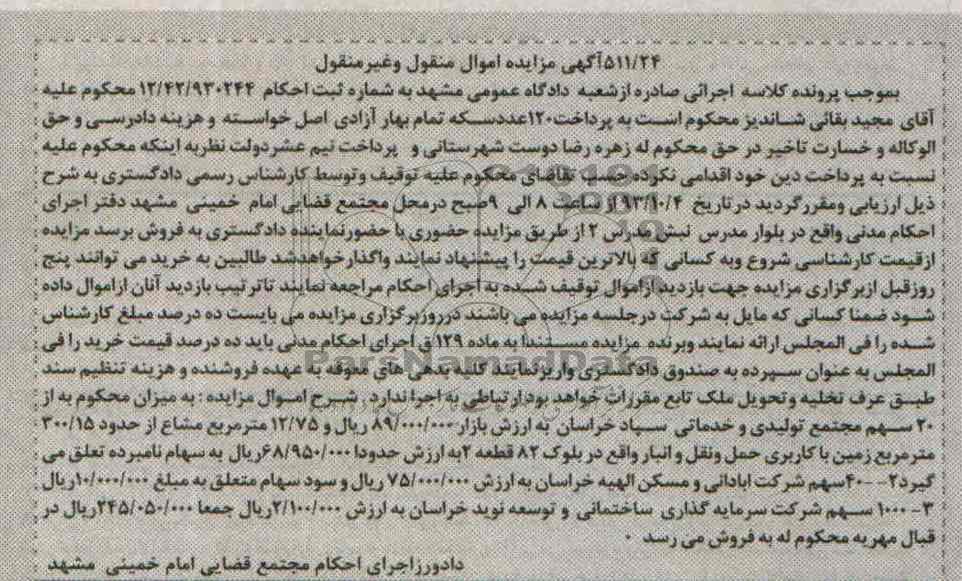 ۵۱۱/۲۴آگهی مزایده اموال منقول وغیرمنقول
بموجب پرونده کلاسه اجرائی صادره ازشعبه دادگاه عمومی مشهد به شماره ثبت احکام ۱۲/۴۲/۹۳۰۲۴۴ محکوم علیه
آقای مجید بقائی شاندیز محکوم است به پرداخت۱۲۰عددسکه تمام بهار آزادی اصل خواسته و هزینه دادرسی و حق
الوکاله و خسارت تاخیر در حق محکوم له زهره رضا دوست شهرستانی و پرداخت نیم عشردولت نظربه اینکه محکوم علیه
نسبت به پرداخت دین خود اقدامی نکرده حسب تقاضای محکوم علیه توقیف وتوسط کارشناس رسمی دادگستری به شرح
ذیل ارزیابی ومقررگردید درتاریخ ۹۳/۱۰/۴از ساعت ۸ الی ۹صبح درمحل مجتمع قضایی امام خمینی مشهد دفتر اجرای
احکام مدنی واقع در بلوار مدرس نبش مدرس ۲ از طریق مزایده حضوری با حضورنماینده دادگستری به فروش برسد مزایده
ازقیمت کارشناسی شروع وبه کسانی که بالاترین قیمت را پیشنهاد نمایند واگذارخواهدشد طالبین به خرید می توانند پنج
روزقبل ازبرگزاری مزایده جهت بازدید ازاموال توقیف شده به اجرای احکام مراجعه نمایند تاترتیب بازدید آنان ازاموال داده
شود ضمنا کسانی که مایل به شرکت درجلسه مزایده می باشند درروزبرگزاری مزایده می بایست ده درصد مبلغ کارشناس
شده را فی المجلس ارائه نمایند وبرنده مزایده مستندا به ماده ۱۲۹ ق اجرای احکام مدنی باید ده درصد قیمت خرید را فی
المجلس به عنوان سپرده به صندوق دادگستری واریزنمایند کلیه بدهی های معوقه به عهده فروشنده و هزینه تنظیم سند
طبق عرف تخلیه وتحویل ملک تابع مقررات خواهد بود ارتباطی به اجرا ندارد . شرح اموال مزایده : به میزان محکوم به از
۲۰ سهم مجتمع تولیدی و خدماتی سپاد خراسان به ارزش بازار ۸۹/۰۰۰/۰۰۰ ریال و ۱۲/۷۵ مترمربع مشاع از حدود ۳۰۰/۱۵
مترمربع زمین با کاربری حمل ونقل و انبار واقع در بلوک ۸۲ قطعه ۲به ارزش حدودا ۶۸/۹۵۰/۰۰۰ریال به سهام نامبرده تعلق می
گیرد۲- ۴۰۰سهم شرکت ابادانی و مسکن الهیه خراسان به ارزش ۷۵/۰۰۰/۰۰۰ ریال و سود سهام متعلق به مبلغ ۱۰/۰۰۰/۰۰۰ریال
۳- ۱۰۰۰ سهم شرکت سرمایه گذاری ساختمانی و توسعه نوید خراسان به ارزش ۲/۱۰۰/۰۰۰ریال جمعا ۲۴۵/۰۵۰/۰۰۰ریال در
قبال مهریه محکوم له به فروش می رسد .
دادورزاجرای احکام مجتمع قضایی امام خمینی مشهد
ParsNamadData